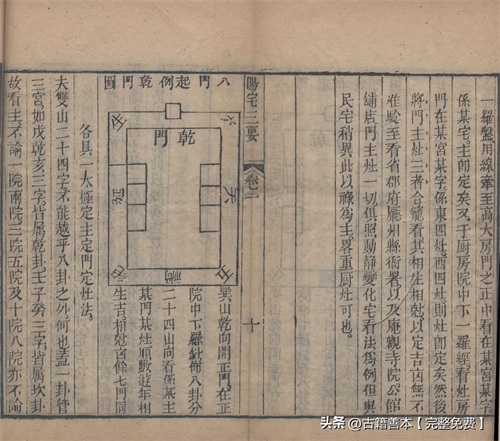 一羅盤用線牽至高大房門之中下看在某宮某字
係某宅主卽定矣又于厨房院中下一羅經看灶房
門在某宮某字係東四灶西四灶則灶卽定矣然後
將門主灶三者合籠看其相生相尅以定吉凶無不
准驗至看省郡府廳州縣衙署以及庵觀寺院公館
鋪店門主灶一切俱照動静變化宅看法爲例但與
民宅稍異此以祿爲主畧重厨灶可也
陽宅三要
卷二
十
八門起例乾門圖
乾門
六
天
五
禍
絕
巽山乾向開正門在正
院中下羅針佈八卦分
二十四山向看係某主
某門某灶順數遊年相
生吉相尅凶餘七門同
各具一太極定主定門定灶法
夫雙山二十四字不能越乎八卦之外何也蓋一卦管
三宮如戌乾亥三字皆屬乾卦壬子癸三字皆屬坎卦
故看主不論一院南院三院五院及十院八院亦不論
头条 @古籍善本【完整免费】